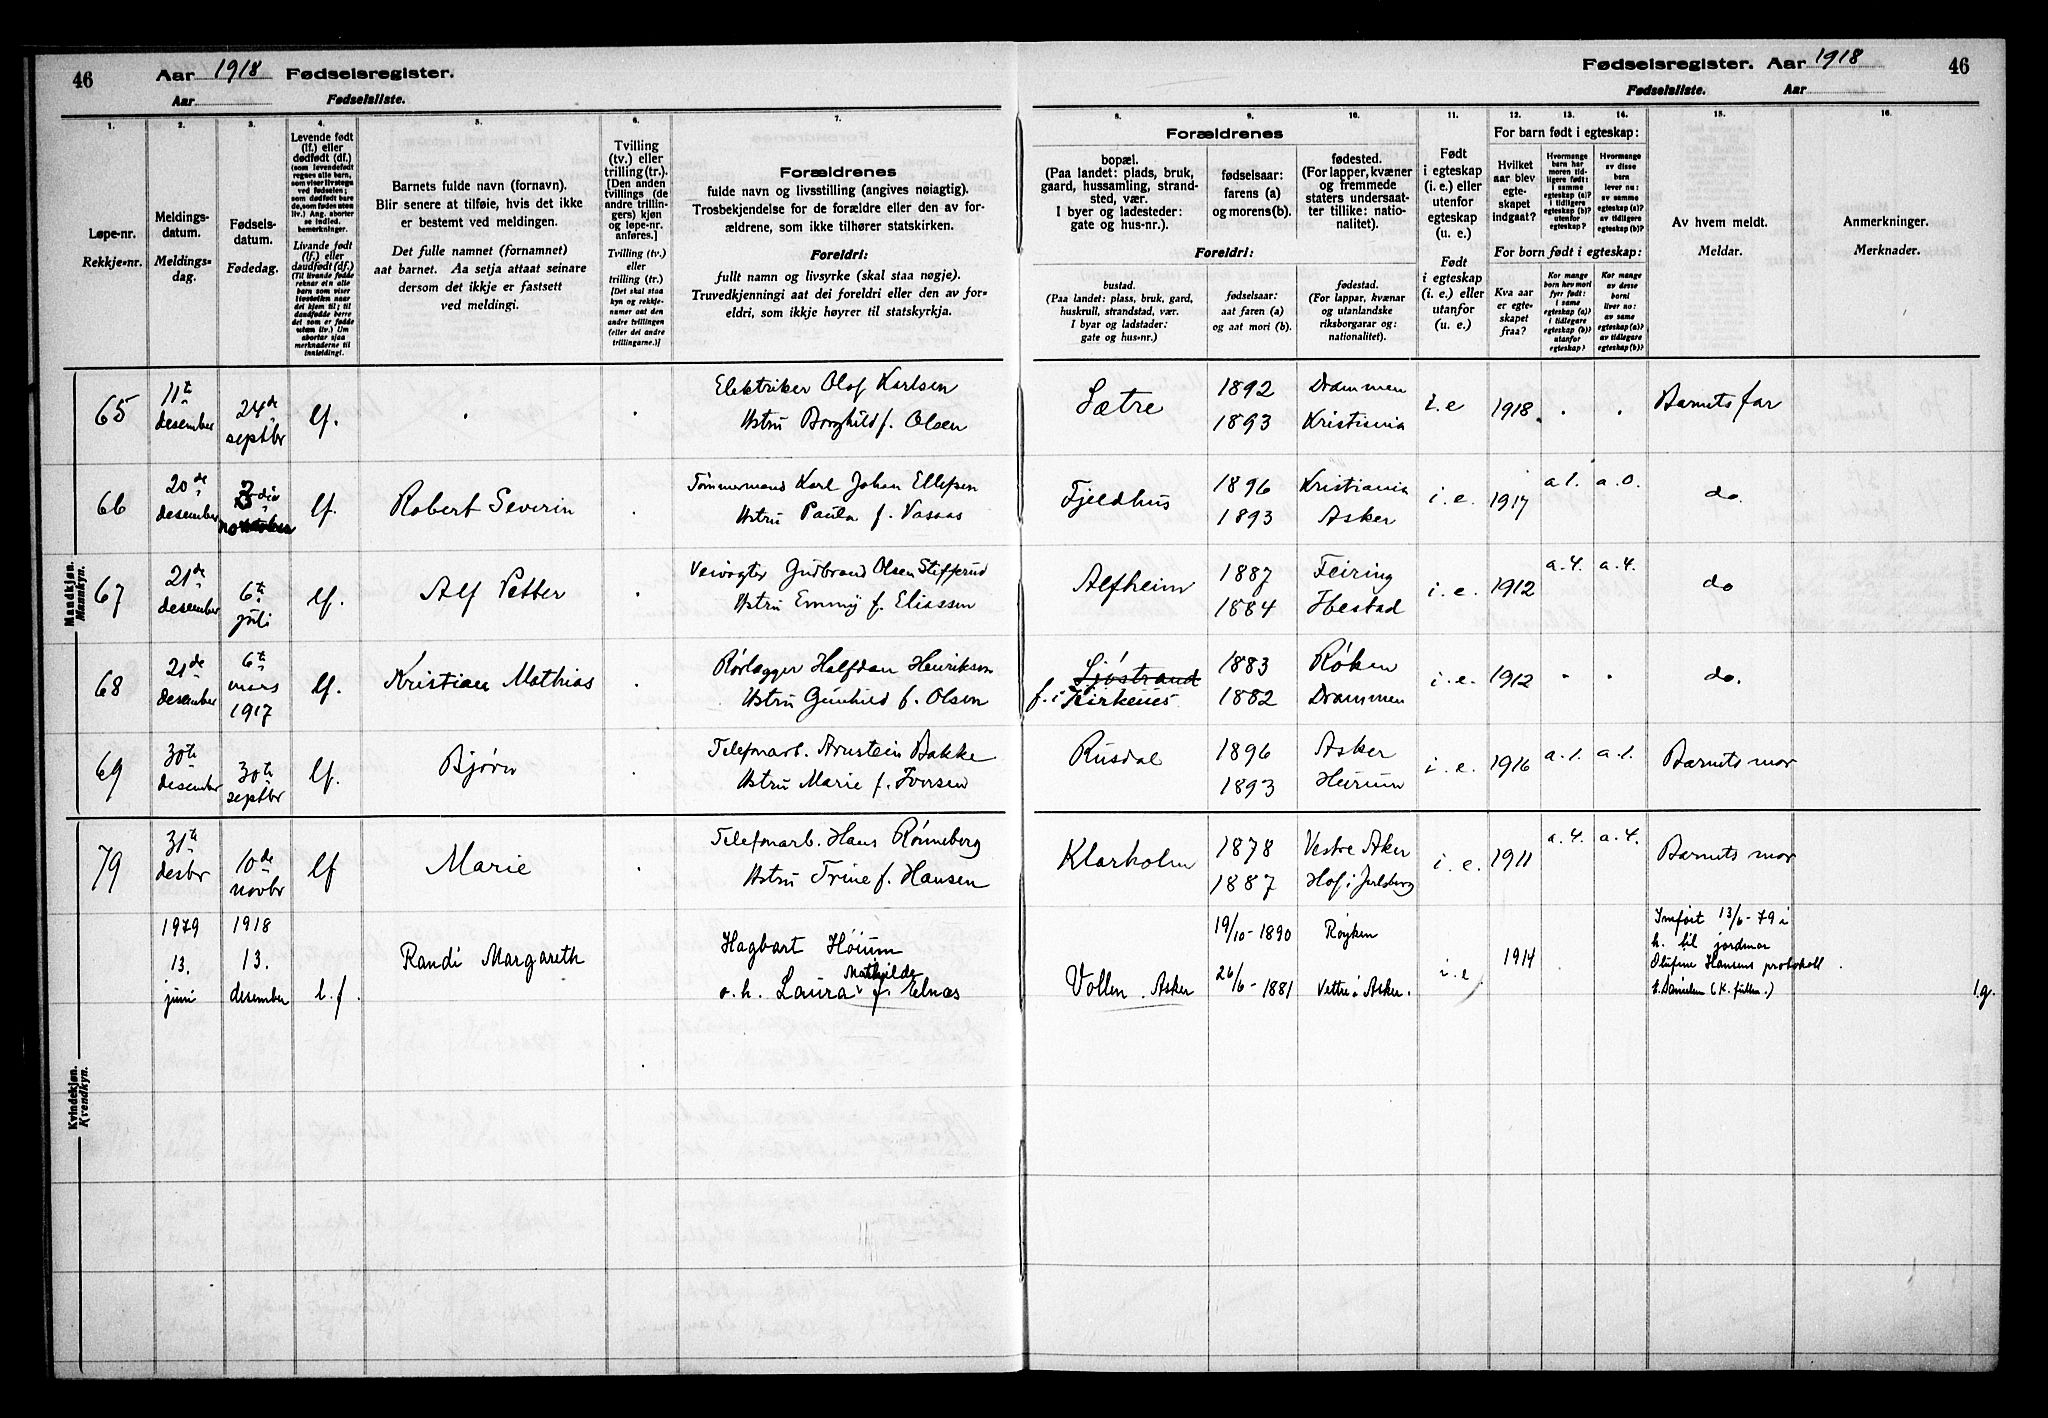 46 Aar 1918 Fødselsregister.
Aar Fødselsliste.
Fødselsregister. Aar 1918 46
Fødselsliste. Aar
1. 2. 3. 4. 5. 6. 7.
Løpe-nr.
Rekkje-nr.
Meldings-
datum.
Meldings-
dag.
Fødsels-
datum.
Fødedag.
Levende født
(lf.) eller
dødfødt (df.)
Livande født
(lf.) eller
daudfødt (df.)
Barnets fulde navn (fornavn).
Blir senere at tilføie, hvis det ikke
er bestemt ved meldingen.
Det fulle namnet (fornamnet)
aat barnet. Aa setja attaat seinare
dersom det ikkje er fastsett
ved meldingi.
Tvilling
(tv.) eller
trilling (tr.).
[Den anden
tvillings (de
andre trillin-
gers) kjøn
og løpe-nr.
anføres.]
Tvilling (tv.)
eller
trilling (tr.)
[Det skal staa
kyn og rekkje-
numer aat den
andre tvillingen
(eller dei andre
trillingarne.)]
Forældrenes
fulde navn og livsstilling (angives nøiagtig).
Trosbekjendelse for de forældre eller den av for-
ældrene, som ikke tilhører statskirken.
Foreldri:
fullt namn og livsyrke (skal staa nøgje).
Truvedkjenningi aat dei foreldri eller den av for-
eldri, som ikkje høyrer til statskyrkja.
8. 9. 10. 11. 12. 13. 14. 15. 16.
Forældrenes
bopæl.
(Paa landet: plads, bruk,
gaard, hussamling, strand-
sted, vær.
I byer og ladesteder:
gate og hus-nr.).
fødselsaar:
farens (a)
og morens (b).
fødested.
(For lapper, kvæner
og fremmede
staters undersaat-
ter tillike: natio-
nalitet).
Foreldri:
bustad.
(Paa landet: plass, bruk, gard,
huskrull, strandstad, vær.
I byar og ladstader:
gate og hus-nr.)
fødselsaar:
aat faren (a)
og aat mori (b).
fødestad.
(For lappar, kvænar
og utanlandske
riksborgarar og:
nationalitet).
Født
i egteskap
(i. e.) eller
utenfor
egteskap
(u. e.)
Født
i egteskap
(i. e.) eller
utanfor
(u. e.)
For barn født i egteskap:
Hvilket
aar blev
egte-
skapet
indgaat?
Hvormange
barn har
moren tid-
ligere født:
i samme
egteskap (a)?
i tidligere
egteskap (b)?
utenfor
egteskap?
Hvormange
av disse
barn
lever nu:
av samme
egteskap (a)?
av tidligere
egteskap (b)?
For born født i egteskap:
Kva aar
er egte-
skapet
fraa?
Kor mange
born hev mori
fyrr født:
i same
egteskap (a)?
i tidlegare
egteskap (b)?
utanfor
egteskap?
Kor mange
av desse
borni
liver no:
av same
egteskap (a)?
av tidlegare
egteskap (b)?
Av hvem meldt.
Meldar.
Anmerkninger.
Merknader.
Mandkjøn.
Mannkyn.
65 11te desember 24de septbr lf. Elektriker Olaf Karlsen Sætre 1892 Drammen i.e 1918 Barnets far
Hstru Borghild f. Olsen 1893 Kristiania
66 20de desember 3die lf. Robert Severin Tømmermand Karl Johan Ellefsen Fjeldhus 1896 Kristiania i.e. 1917 a 1. a.0. do.
Hstru Paula f. Vasaas 1893 Asker
67 21de desember 6te juli lf. Alf Petter Veivogter Gudbrand Olsen Stifferud Alfheim 1887 Feiring i.e. 1912 a.4. a.4. do
Hstru Emmy f. Eliassen 1884 Ibestad
68 21de desember 6te mars 1917 lf. Kristian Mathias Rørlægger Halfdan Henriksen Sjøstrand 1883 Røken i.e. 1912 do.
Hstru Gunhild f. Olsen f. i Kirkenes 1882 Drammen
69 30te desember 30te septbr lf. Bjørn Telefonarb. Arnstein Bakke Rusdal 1896 Asker i.e. 1916 a.1. a.1. Barnets mor
Hstru Marie f. Iversen 1893 Heium
Kvindekjøn.
Kvendkyn.
79 31te desbr 10de novbr lf Marie Telefonarb. Hans Rønneberg Klarholm 1878 Vestre Aker i.e. 1911 a.4. a.4. Barnets mor
Hstru Trine f. Hansen 1887 Hof i Jarlsberg
1979 13. juni 1918 13. desember l.f Randi Margareth Hagbart Høium 19/10-1890 Røyken i.e 1914 Innført 13/6-79 i
h. til jordmor
o.h. Laura Mathilde f. Elnæs Vollen. Asker 26/6-1881 Vettre i Asker. Olufine Hansens protokoll
1.g.